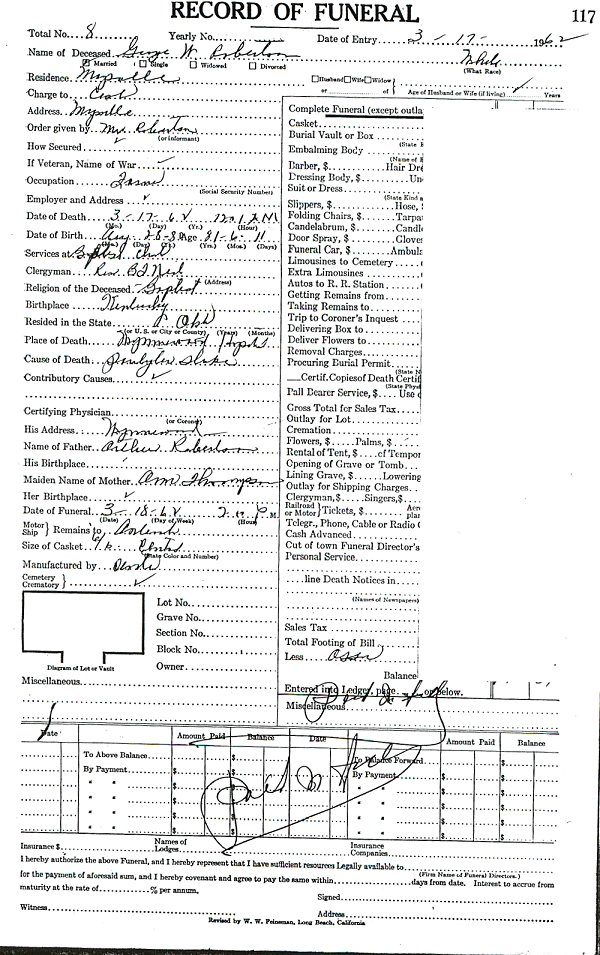 RECORD OF FUNERAL 117
Total No. 8 Yearly No. Date of Entry 3-17- 1962
Name of Deceased George W. Robertson White
Married Single Widowed Divorced (What Race)
Residence Husband Wife Widow
or of Age of Husband or Wife (if living) Years
Charge to Cash
Address
Order given by Mrs Robertson
(or informant)
How Secured
If Veteran, Name of War
Occupation Farmer
(Social Security Number)
Employer and Address
Date of Death 3-17-62
(Mo.) (Day) (Yr.) (Hour)
Date of Birth Aug. Age 81-6-
(Mo.) (Day) (Yr.) (Yrs.) (Mos.) (Days)
Services at Baptist
Clergyman Rev.
Religion of the Deceased Baptist (Address)
Birthplace Kentucky
Resided in the State Okla
(or U. S. or City or County) (Years) (Months)
Place of Death Wynnewood Hospital
Cause of Death
Contributory Causes
Certifying Physician
(or Coroner)
His Address Wynnewood
Name of Father Arthur Robertson
His Birthplace
Maiden Name of Mother Ann Thompson
Her Birthplace
Date of Funeral 3-18-62 P. M.
(Date) (Day of Week) (Hour)
Motor
Ship } Remains to
Size of Casket
(State Color and Number)
Manufactured by
Cemetery
Crematory }
Lot No.
Grave No.
Section No.
Block No.
Owner
Diagram of Lot or Vault
Miscellaneous
Complete Funeral (except outla
Casket
Burial Vault or Box
(State K
Embalming Body
(Name of E
Barber, $ Hair Dre
Dressing Body, $ Un
Suit or Dress
(State Kind a
Slippers, $ Hose, $
Folding Chairs, $ Tarpa
Candelabrum, $ Candle
Door Spray, $ Glove
Funeral Car, $ Ambula
Limousines to Cemetery
Extra Limousines
Autos to R. R. Station
Getting Remains from
Taking Remains to
Trip to Coroner's Inquest
Delivering Box to
Deliver Flowers to
Removal Charges
Procuring Burial Permit
(State N
Certif. Copies of Death Certif
(State Phys
Pall Bearer Service, $ Use o
Gross Total for Sales Tax
Outlay for Lot
Cremation
Flowers, $ Palms, $
Rental of Tent, ( of Tempor
Opening of Grave or Tomb
Lining Grave, $ Lowering
Outlay for Shipping Charges
Clergyman, $ Singers, $
Railroad
or Motor } Tickets, $ Aer
plan
Telegr., Phone, Cable or Radio C
Cash Advanced
Out of town Funeral Director's
Personal Service
line Death Notices in
(Names of Newspapers)
Sales Tax
Total Footing of Bill
Less
Balance
Entered into Ledger, page or below.
Miscellaneous
Date Amount Paid Balance Date Amount Paid Balance
To Above Balance $ To Balance Forward $
By Payment $ $ By Payment $ $
" " $ $ " " $ $
" " $ $ " " $ $
" " $ $ " " $ $
" " $ $ " " $ $
Paid in Full
Insurance $ Names of Lodges Insurance Companies
I hereby authorize the above Funeral, and I hereby represent that I have sufficient resources Legally available to
(Firm Name of Funeral Directors.)
for the payment of aforesaid sum, and I hereby covenant and agree to pay the same within days from date. Interest to accrue from
maturity at the rate of % per annum. Signed
Witness Address
Revised by W. W. Feineman, Long Beach, California